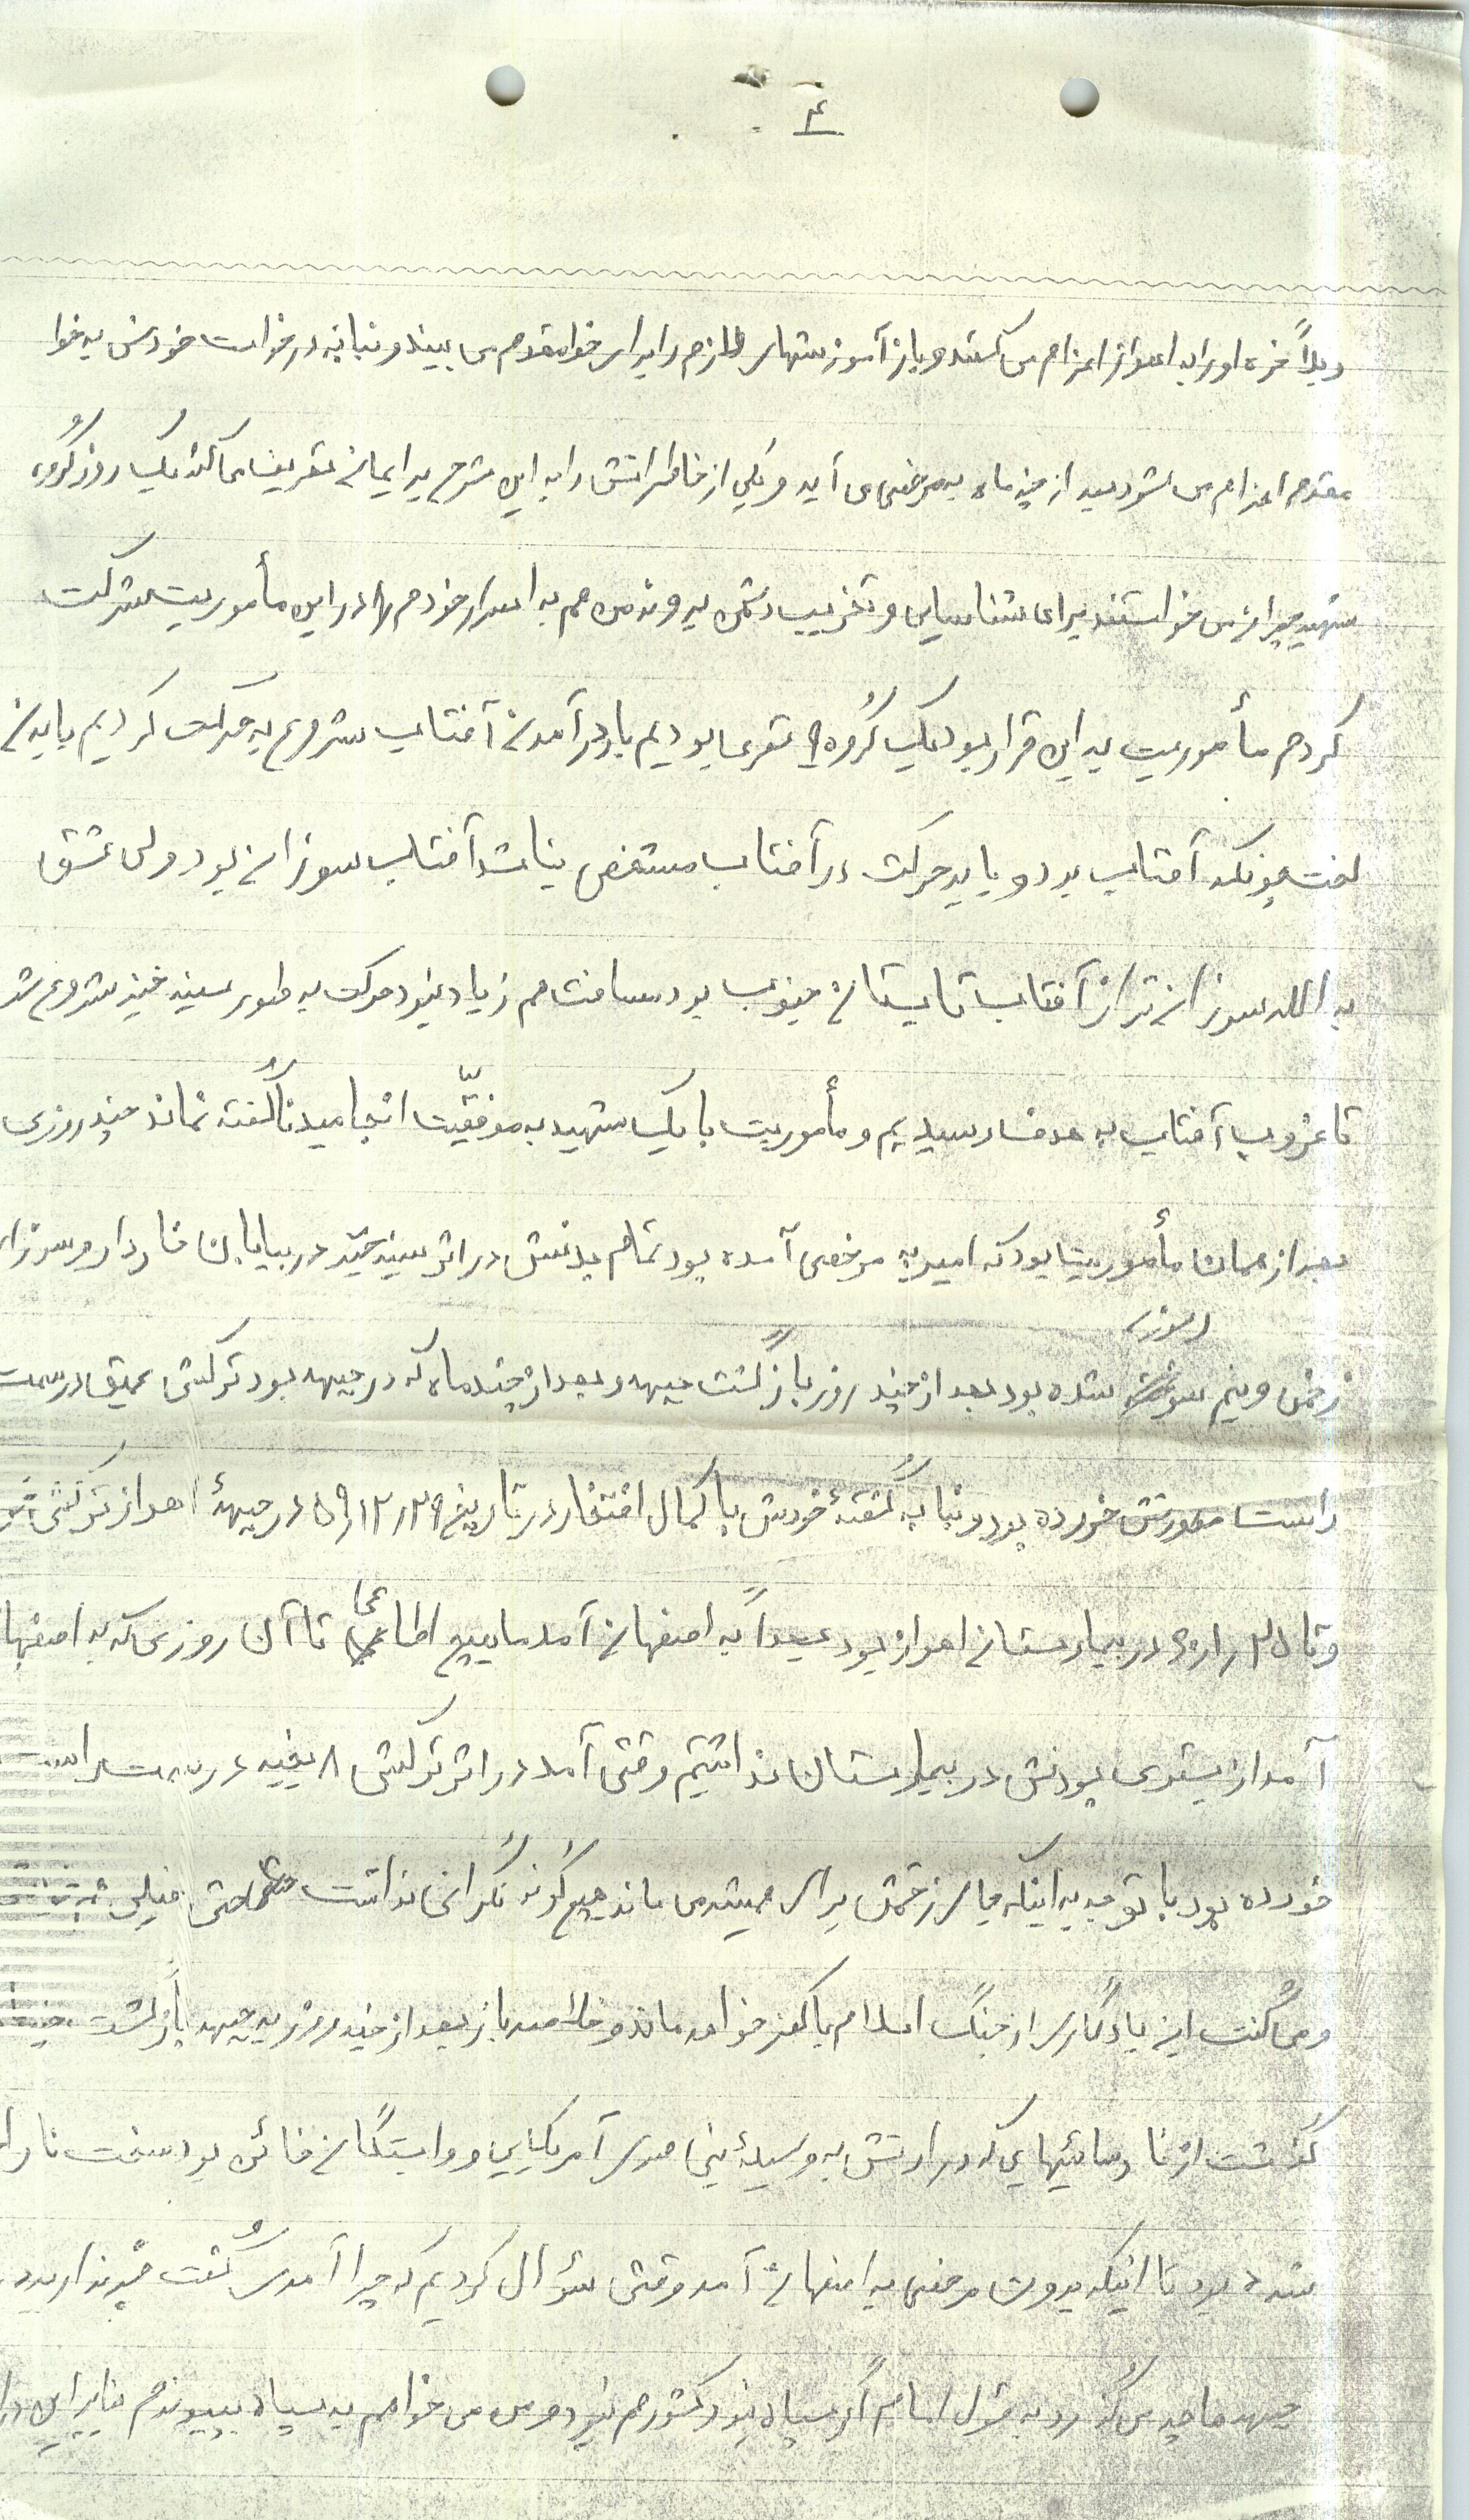 ۴
و بالاخره او را به اهواز اعزام می کنند و باز آموزشهای لازم را برای خط مقدم می بیند و بنا به درخواست خودش به خط
مقدم اعزام می شود بعد از چند ماه به مرخصی می آید و یکی از خاطراتش را به این شرح برایمان تعریف می کند یک روز گروه
شهید چمران می خواستند برای شناسایی و تخریب دشمن بروند من هم به اصرار خودم در این مأموریت شرکت
کردم مأموریت به این قرار بود یک گروه ۹ نفری بودیم با در آمدن آفتاب شروع به حرکت کردیم با بدن
لخت چونکه آفتاب بود و باید حرکت در آفتاب مشخص نباشد آفتاب سوزان بود ولی عشق
به الله سوزان تر از آفتاب تابستان جنوب بود مسافت هم زیاد نبود حرکت به طور سینه خیز شروع شد
تا غروب آفتاب به هدف رسیدیم و مأموریت با یک شهید به موفقیّت انجامید ناگفته نماند چند روزی
بعد از همان مأموریت بود که امیر به مرخصی آمده بود تمام بدنش در اثر سینه خیز در بیابان خاردار و سوزان
زخمی و نیم سوخته شده بود بعد از چند روز بازگشت جبهه و بعد از چند ماه که در جبهه بود ترکشی عمیق در سمت
راست صورتش خورده بود و بنا به گفتهٔ خودش با کمال افتخار در تاریخ ۵۹٫۱۲٫۲۹ در جبههٔ اهواز ترکشی
و تا ۶۰٫۱٫۲۵ در بیمارستان اهواز بود بعداً به اصفهان آمد ما هیچ اطلاعی تا آن روزی که به اصفهان
آمد از بستری بودنش در بیمارستان نداشتیم وقتی آمد در اثر ترکشی ۸ بخیه در سمت راست
خورده بود با توجه به اینکه جای زخمش برای همیشه می ماند هیچ گونه نگرانی نداشت حتی خیلی
و می گفت این یادگاری از جنگ اسلام با کفر خواهد ماند و خلاصه باز بعد از چند روز به جبهه بازگشت
گذشت از نارسائیهایی که در ارتش به وسیلهٔ بنی صدر آمریکایی و وابستگان خائن بود سخت ناراحت
شده بود تا اینکه بدون مرخصی به اصفهان آمد وقتی سؤال کردیم که چرا آمدی گفت خبر ندارید در
جبهه ها چه می گذرد به قول امام اگر سپاه نبود کشور هم نبود و من می خواهم به سپاه بپیوندم بنابراین